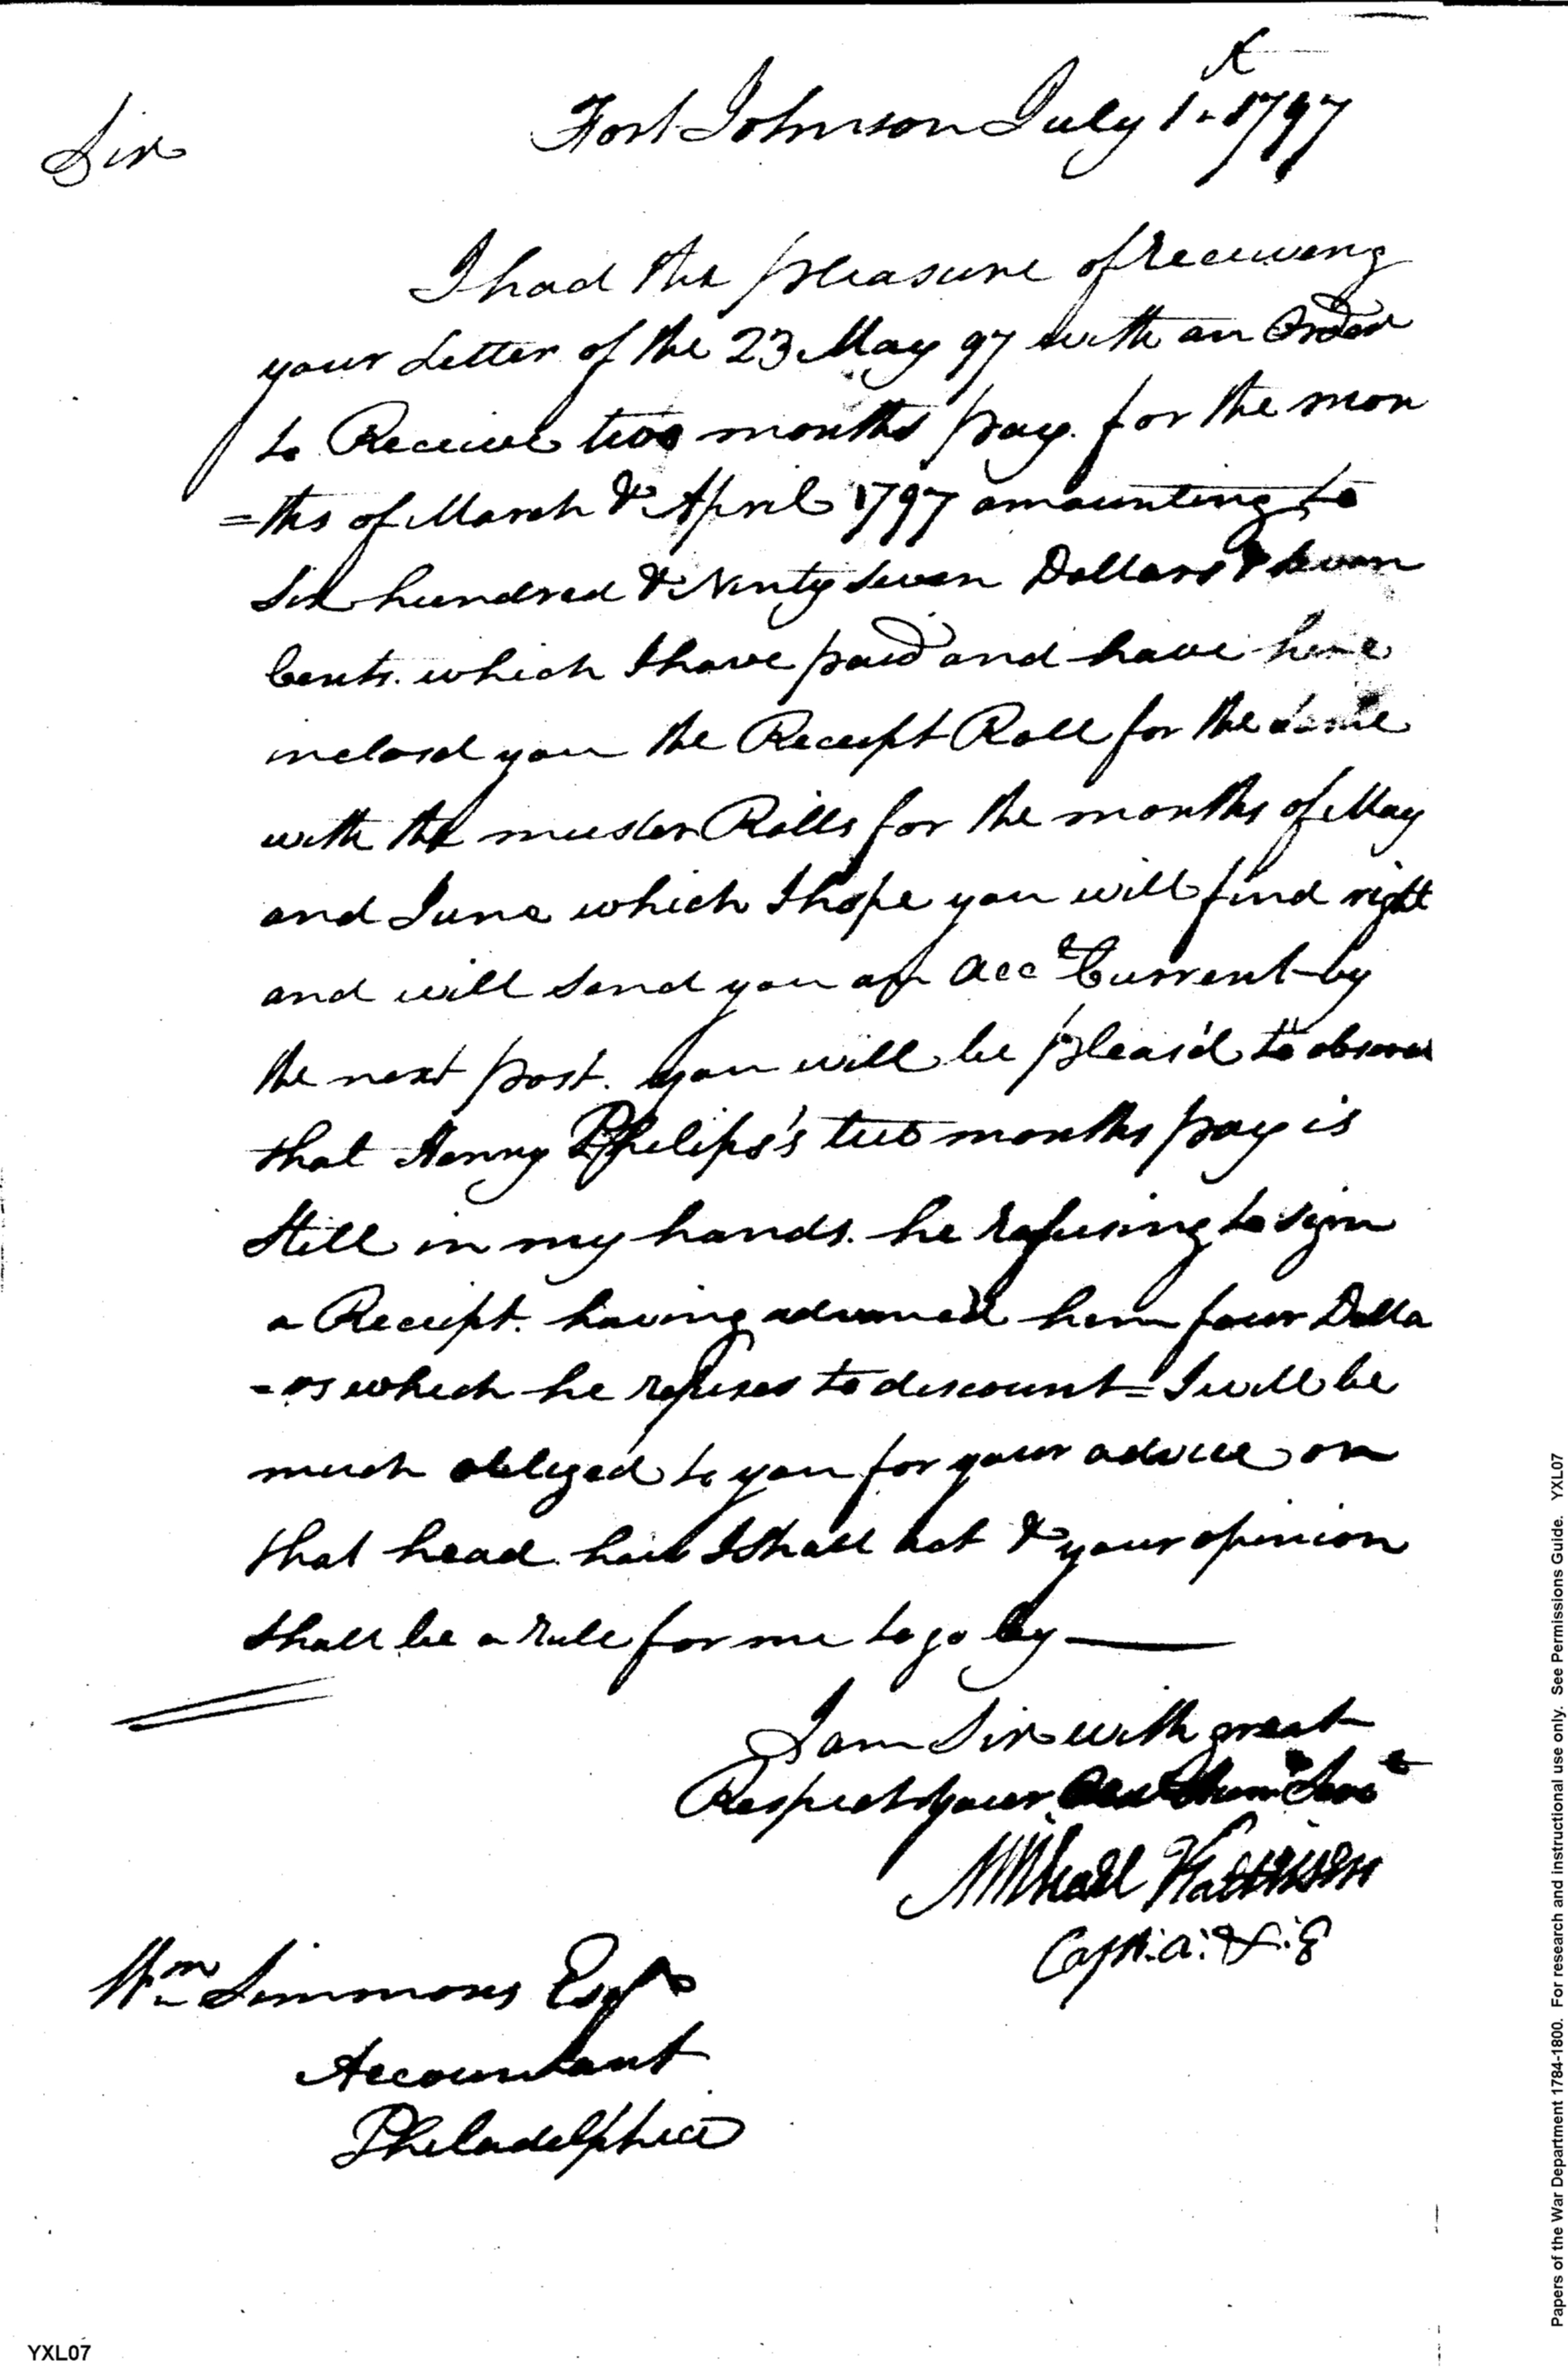 Fort Johnson July 1st 1797
Sir
I had the pleasure of receiveng
your Letter of the 23 May 97 with an Order
to Receive two months pay. for the mon
=ths of March & April 1797 amounting to
Six hundred & Ninty Seven Dollars & Seven
Cents. which I have paid and have here
inclosd you the Receipt Roll for the same
with the muster Rolls for the months of May
and June which I hope you will find right
and will send you an Acct Current by
the next post. you will be pleas'd to observe
that Henry Philips's two months pay is
Still in my hands. he refusing to sign
a Receipt. having advance'd him four Dolla
=rs which he refuses to discount = I will be
much obliged to you for your advice on
that head. how I shall act & your opinion
shall be a rule for me to go by
I am Sir with great
Respect your Obt Humbe Serve
Michael Kalteisen
Capt. A. & E
Wm Simmons Esqr
Accountant
Philadelphia
YXL07
Papers of the War Department 1784-1800. For research and instructional use only. See Permissions Guide. YXL07